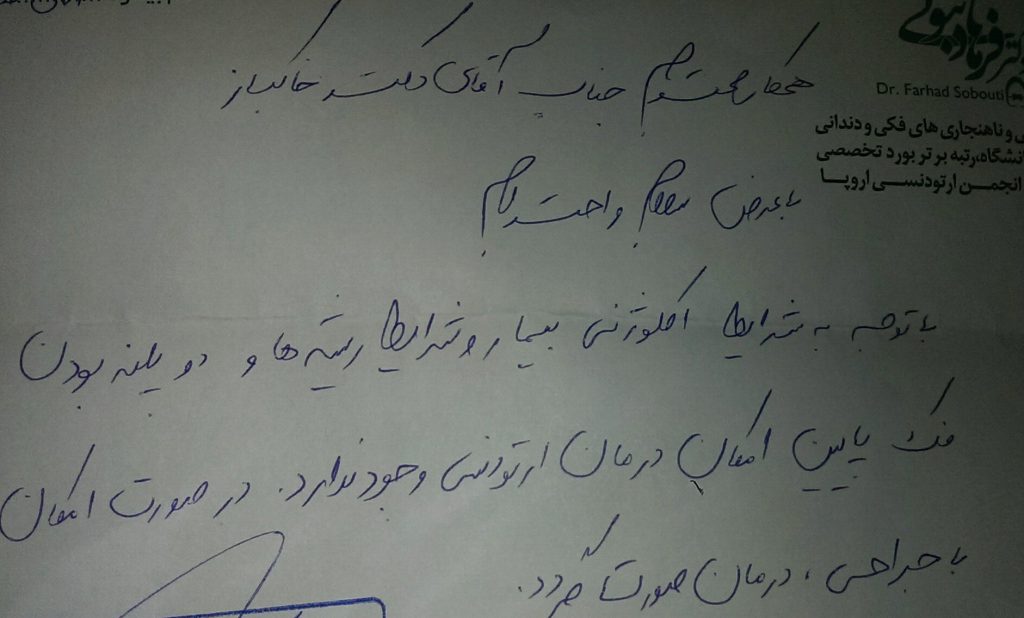 دکتر فرهاد ثبوتی
Dr. Farhad Sobouti
و ناهنجاری های فکی و دندانی
رتبه برتر بورد تخصصی
انجمن ارتودنسی اروپا
همکار محترم جناب آقای دکتر خاکباز
با عرض سلام و احترام
با توجه به شرایط اکلوژنی بیمار و شرایط ریشه ها و دو پلنه بودن
فک پایین امکان درمان ارتودنسی وجود ندارد. در صورت امکان
با جراحی، درمان صورت گردد.